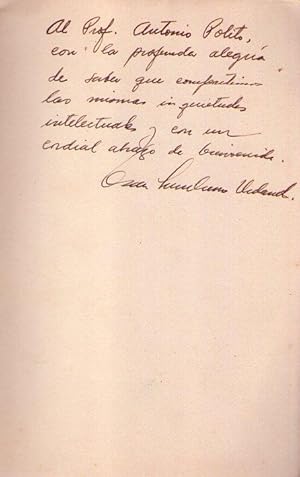 Al Prof. Antonio Polito,
con la profunda alegría
de saber que compartimos
las mismas inquietudes
intelectuales y con un
cordial abrazo de bienvenida.